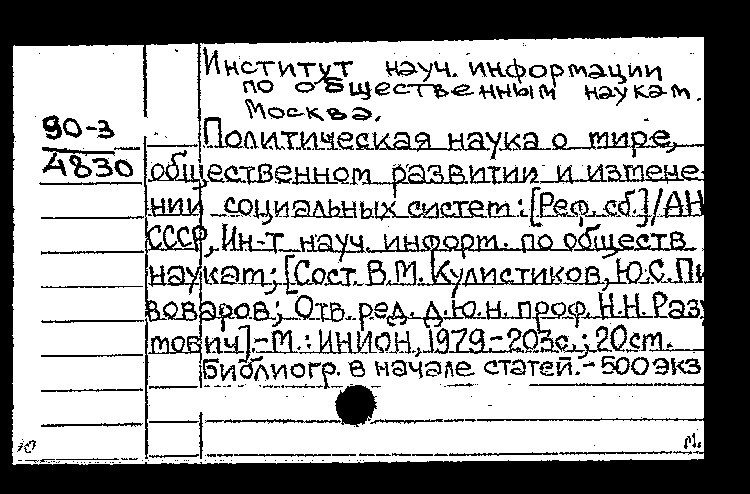 Институт науч. информации
по общественным наукам.
Москва.
90-3
4830
Политическая наука о мире,
общественном развитии и измене-
нии социальных систем: [Реф. сб.]/АН
СССР, Ин-т науч. информ. по обществ.
наукам; [Сост. В.М. Кулистиков, Ю.С. Пи
воваров; Отв. ред. д.ю.н. проф. Н.Н. Разу
мович]. - М.: ИНИОН, 1979. - 203с.; 20см.
Библиогр. в начале статей. - 500 экз
Ю
М.